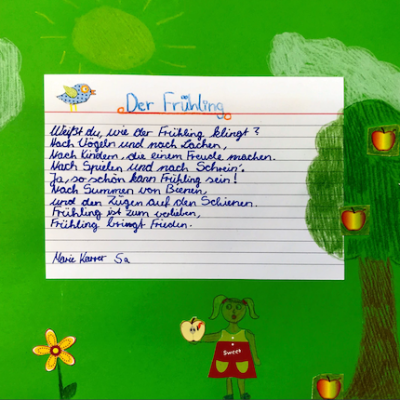 Der Frühling
Weißt du, wie der Frühling klingt?
Nach Vögeln und nach Lachen,
Nach Kindern, die einem Freude machen.
Nach Spielen und nach Schrein'.
Ja, so schön kann Frühling sein!
Nach Summen von Bienen,
und den Zügen auf den Schienen.
Frühling ist zum verlieben,
Frühling bringt Frieden.
Marie Karrer 5a
Sweet